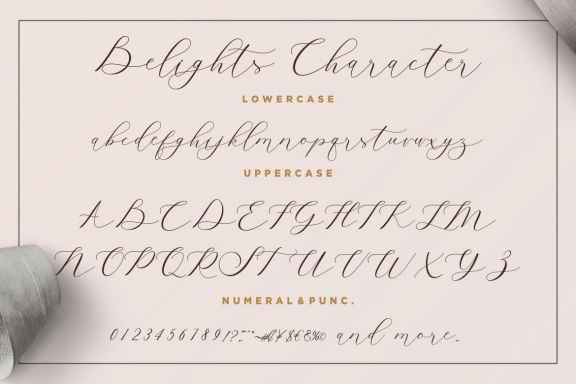 Belights Character
LOWERCASE
abcdefghijklmnopqrstuvwxyz
UPPERCASE
ABCDEFGHIJKLM
NOPQRSTUVWXYZ
NUMERAL & PUNC.
0123456789!? and more..